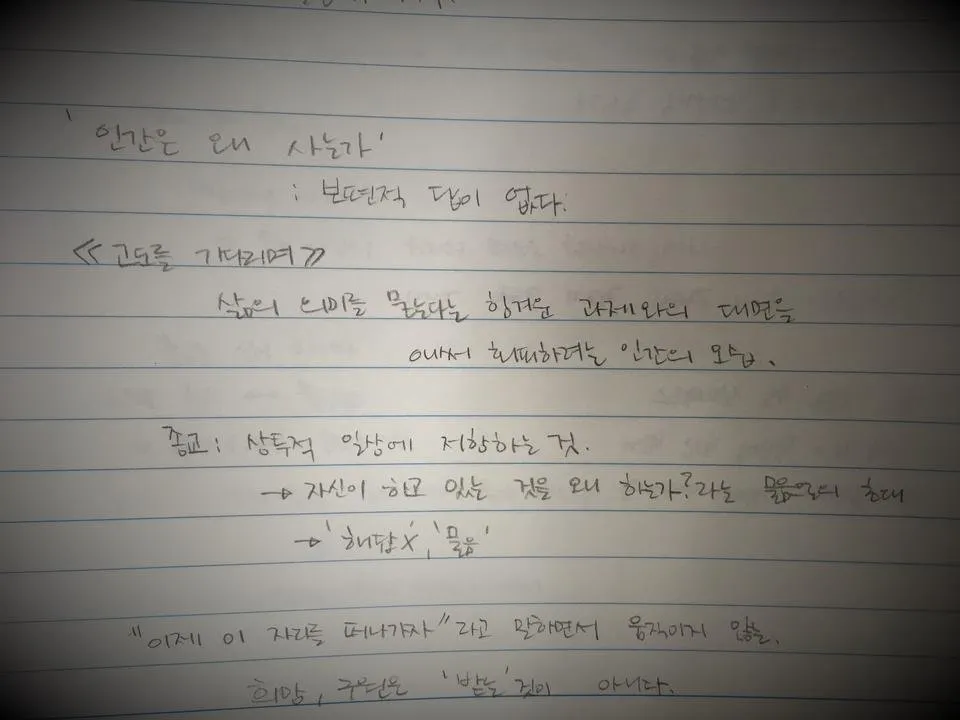 '인간은 왜 사는가'
: 보편적 답이 없다.
≪고도를 기다리며≫
삶의 의미를 묻는다는 힘겨운 과제와의 대면을
애써 회피하려는 인간의 모습.
종교 : 상투적 일상에 저항하는 것.
→ 자신이 하고 있는 것을 왜 하는가?라는 물음으로의 초대
→ '해답X', '물음'
"이제 이 자리를 떠나가자"라고 말하면서 움직이지 않는.
희망, 구원은 '받는' 것이 아니다.